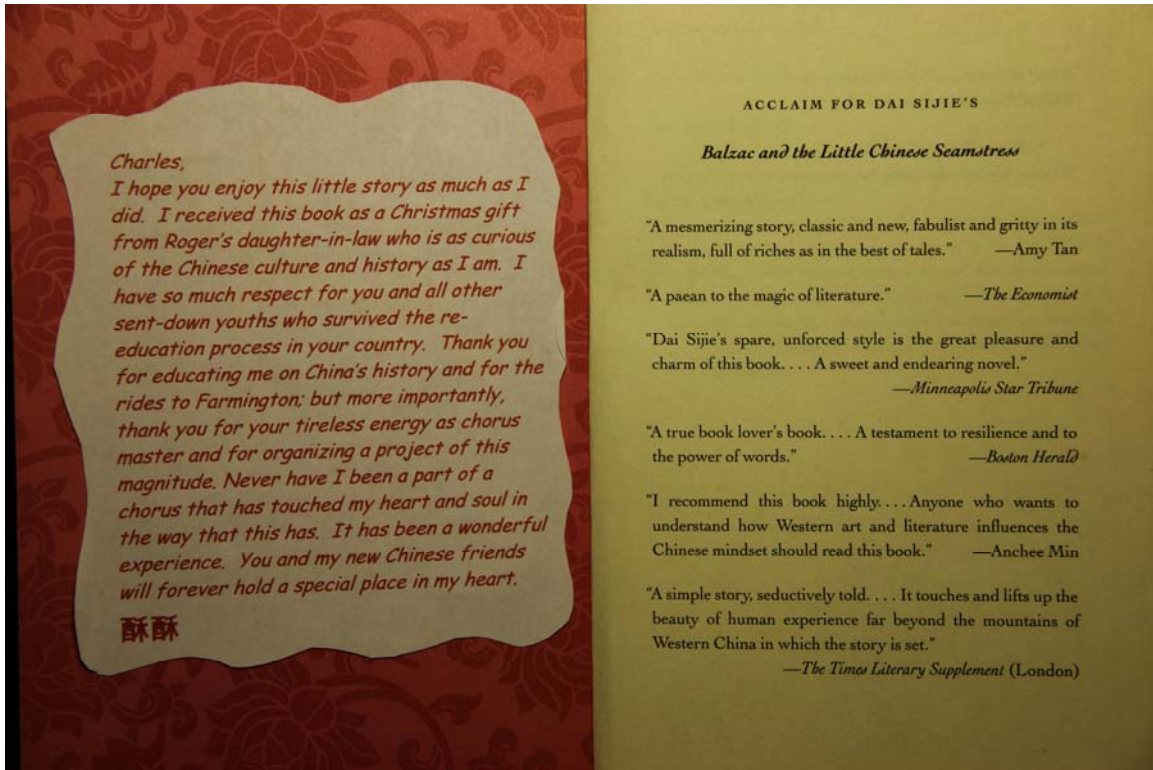 Charles,
I hope you enjoy this little story as much as I
did. I received this book as a Christmas gift
from Roger's daughter-in-law who is as curious
of the Chinese culture and history as I am. I
have so much respect for you and all other
sent-down youths who survived the re-
education process in your country. Thank you
for educating me on China's history and for the
rides to Farmington; but more importantly,
thank you for your tireless energy as chorus
master and for organizing a project of this
magnitude. Never have I been a part of a
chorus that has touched my heart and soul in
the way that this has. It has been a wonderful
experience. You and my new Chinese friends
will forever hold a special place in my heart.
酥酥
ACCLAIM FOR DAI SIJIE'S
Balzac and the Little Chinese Seamstress
"A mesmerizing story, classic and new, fabulist and gritty in its
realism, full of riches as in the best of tales." —Amy Tan
"A paean to the magic of literature." —The Economist
"Dai Sijie's spare, unforced style is the great pleasure and
charm of this book. . . . A sweet and endearing novel."
—Minneapolis Star Tribune
"A true book lover's book. . . . A testament to resilience and to
the power of words." —Boston Herald
"I recommend this book highly. . . . Anyone who wants to
understand how Western art and literature influences the
Chinese mindset should read this book." —Anchee Min
"A simple story, seductively told. . . . It touches and lifts up the
beauty of human experience far beyond the mountains of
Western China in which the story is set."
—The Times Literary Supplement (London)